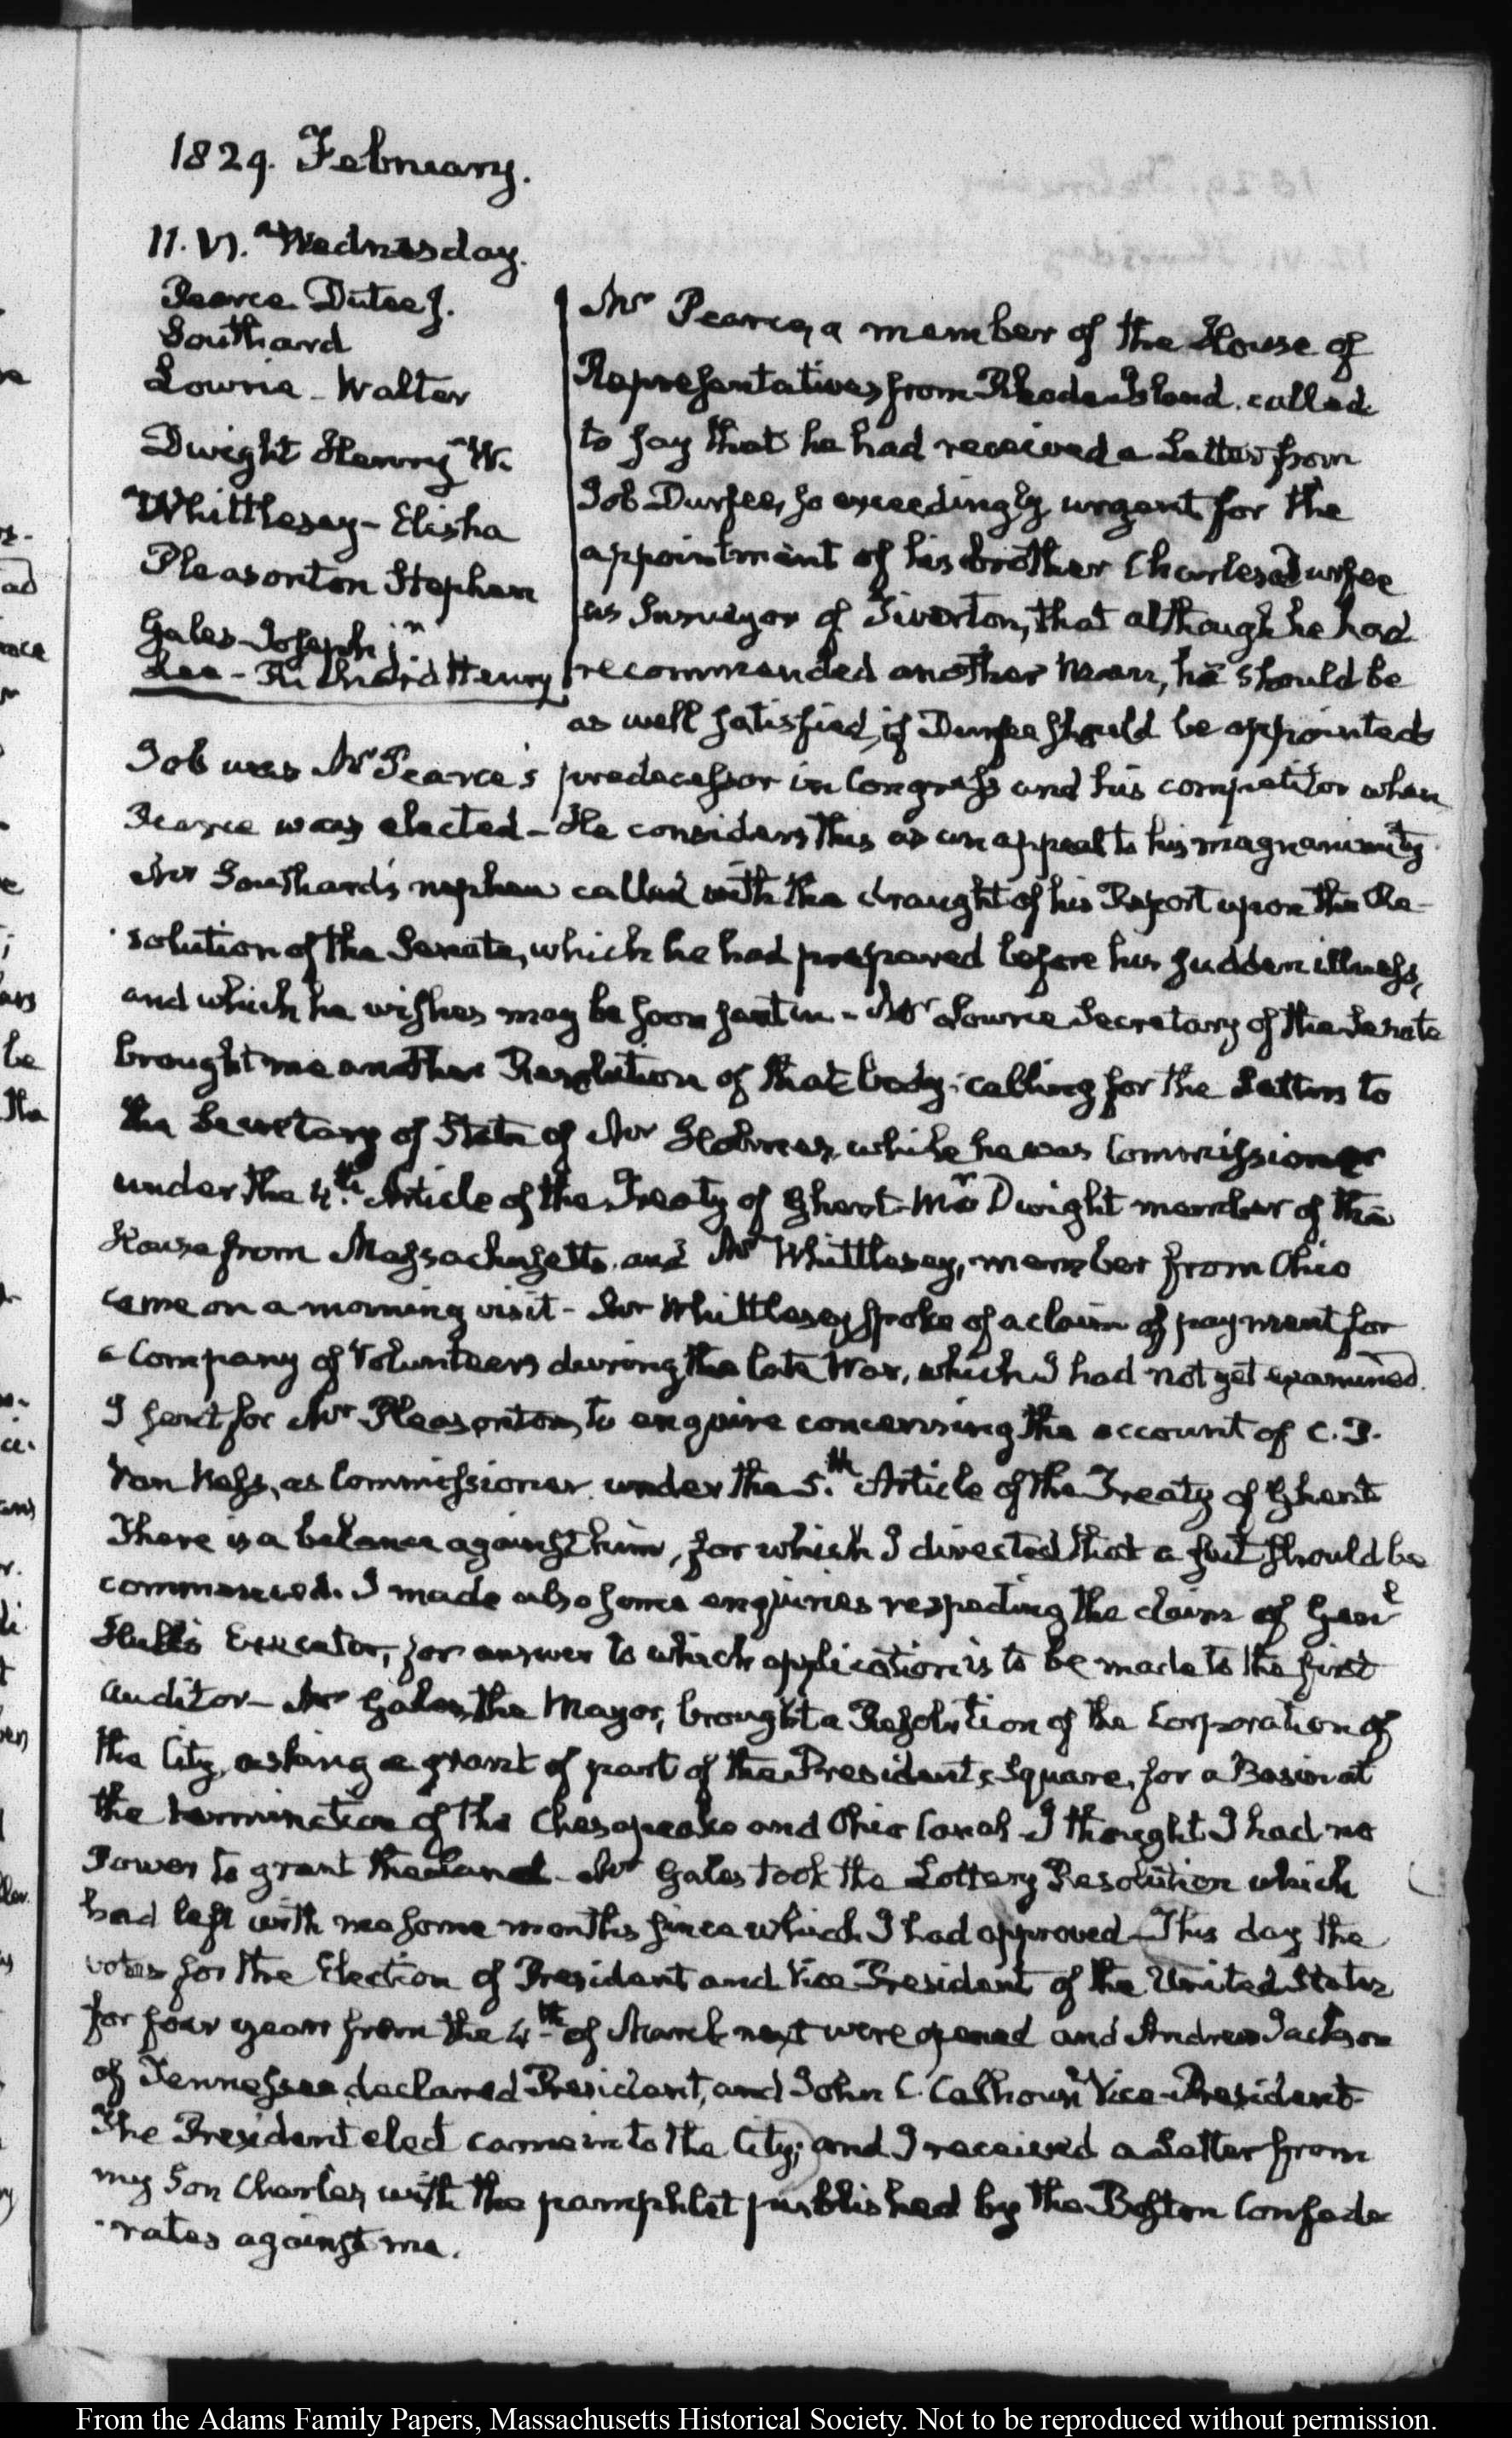 1829. February.
11. VI. Wednesday.
Pearce Dutee J.
Southard
Lowrie - Walter
Dwight Henry W.
Whittlesey - Elisha
Pleasonton Stephen
Gales - Joseph jr.
Lee - Richard Henry
Mr Pearce, a member of the House of
Representatives from Rhode-Island, called
to say that he had received a Letter from
Job Durfee, so exceedingly urgent for the
appointment of his brother Charles Durfee
as Surveyor of Tiverton, that although he had
recommended another man, he should be
as well satisfied, if Durfee should be appointed
Job was Mr Pearce's predecessor in Congress and his competitor when
Pearce was elected - He considers this as an appeal to his magnanimity
Mr Southard's nephew called with the draught of his Report upon the Re-
solution of the Senate, which he had prepared before his sudden illness,
and which he wishes may be soon sent in - Mr Lowrie Secretary of the Senate
brought me another Resolution of that body, calling for the Letters to
the Secretary of State of Mr Holmes, while he was Commissioner
under the 4th. Article of the Treaty of Ghent - Mr Dwight member of the
House from Massachusetts, and Mr Whittlesey, member from Ohio
came on a morning visit - Mr Whittlesey spoke of a claim of payment for
a Company of Volunteers during the late War, which I had not yet examined.
I sent for Mr Pleasonton, to enquire concerning the account of C. P.
Van Ness, as Commissioner under the 5.th Article of the Treaty of Ghent
There is a balance against him, for which I directed that a suit should be
commenced. I made also some enquiries respecting the claim of Genl
Hull's Executor, for answer to which application is to be made to the first
Auditor - Mr Gales, the Mayor, brought a Resolution of the Corporation of
the City, asking a grant of part of the President's Square, for a Basin at
the termination of the Chesapeake and Ohio Canal - I thought I had no
Power to grant the land - Mr Gales took the Lottery Resolution which
had left with me some months since which I had approved - This day the
votes for the Election of President and Vice President of the United States
for four years from the 4th of March next were opened and Andrew Jackson
of Tennessee declared President, and John C. Calhoun Vice-President
The President elect came in to the City; and I received a Letter from
my Son Charles, with the pamphlet published by the Boston Confede-
rates against me.
From the Adams Family Papers, Massachusetts Historical Society. Not to be reproduced without permission.